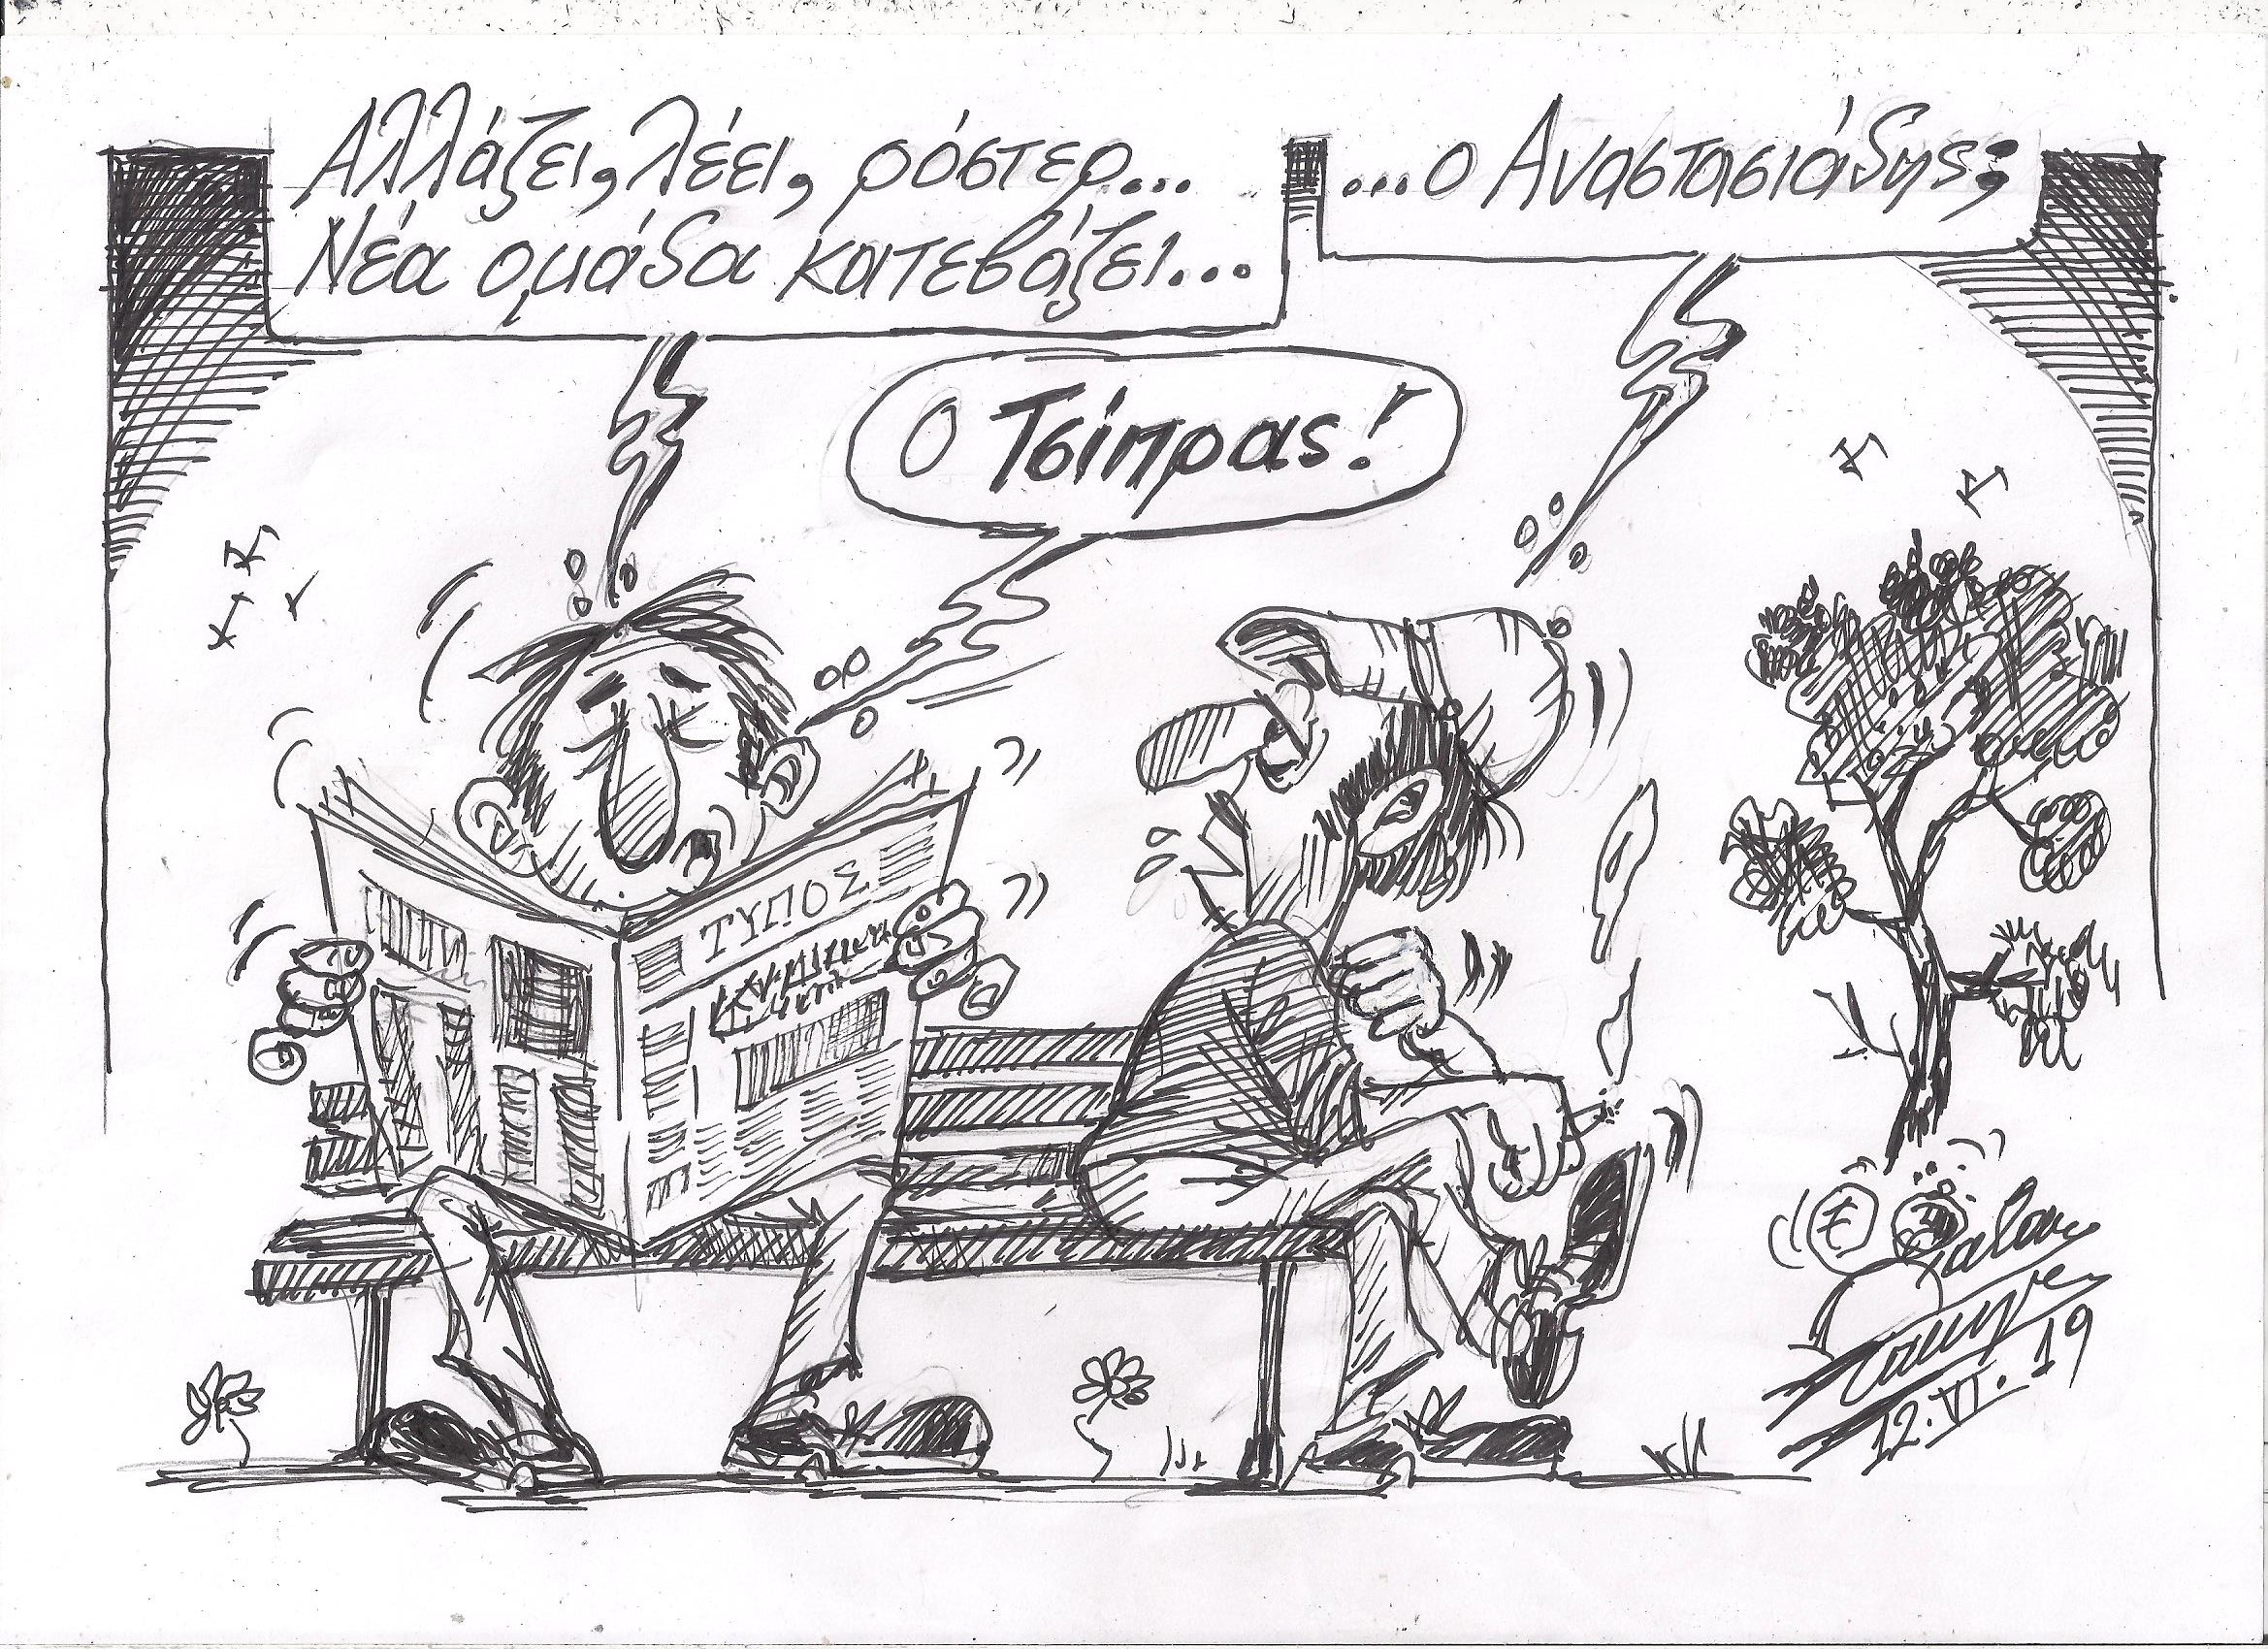 Αλλάζει, λέει, ρόστερ...
Νέα ομάδα κατεβάζει...
...ο Αναστασιάδης;
Ο Τσίπρας!
ΤΥΠΟΣ
12.VI.19